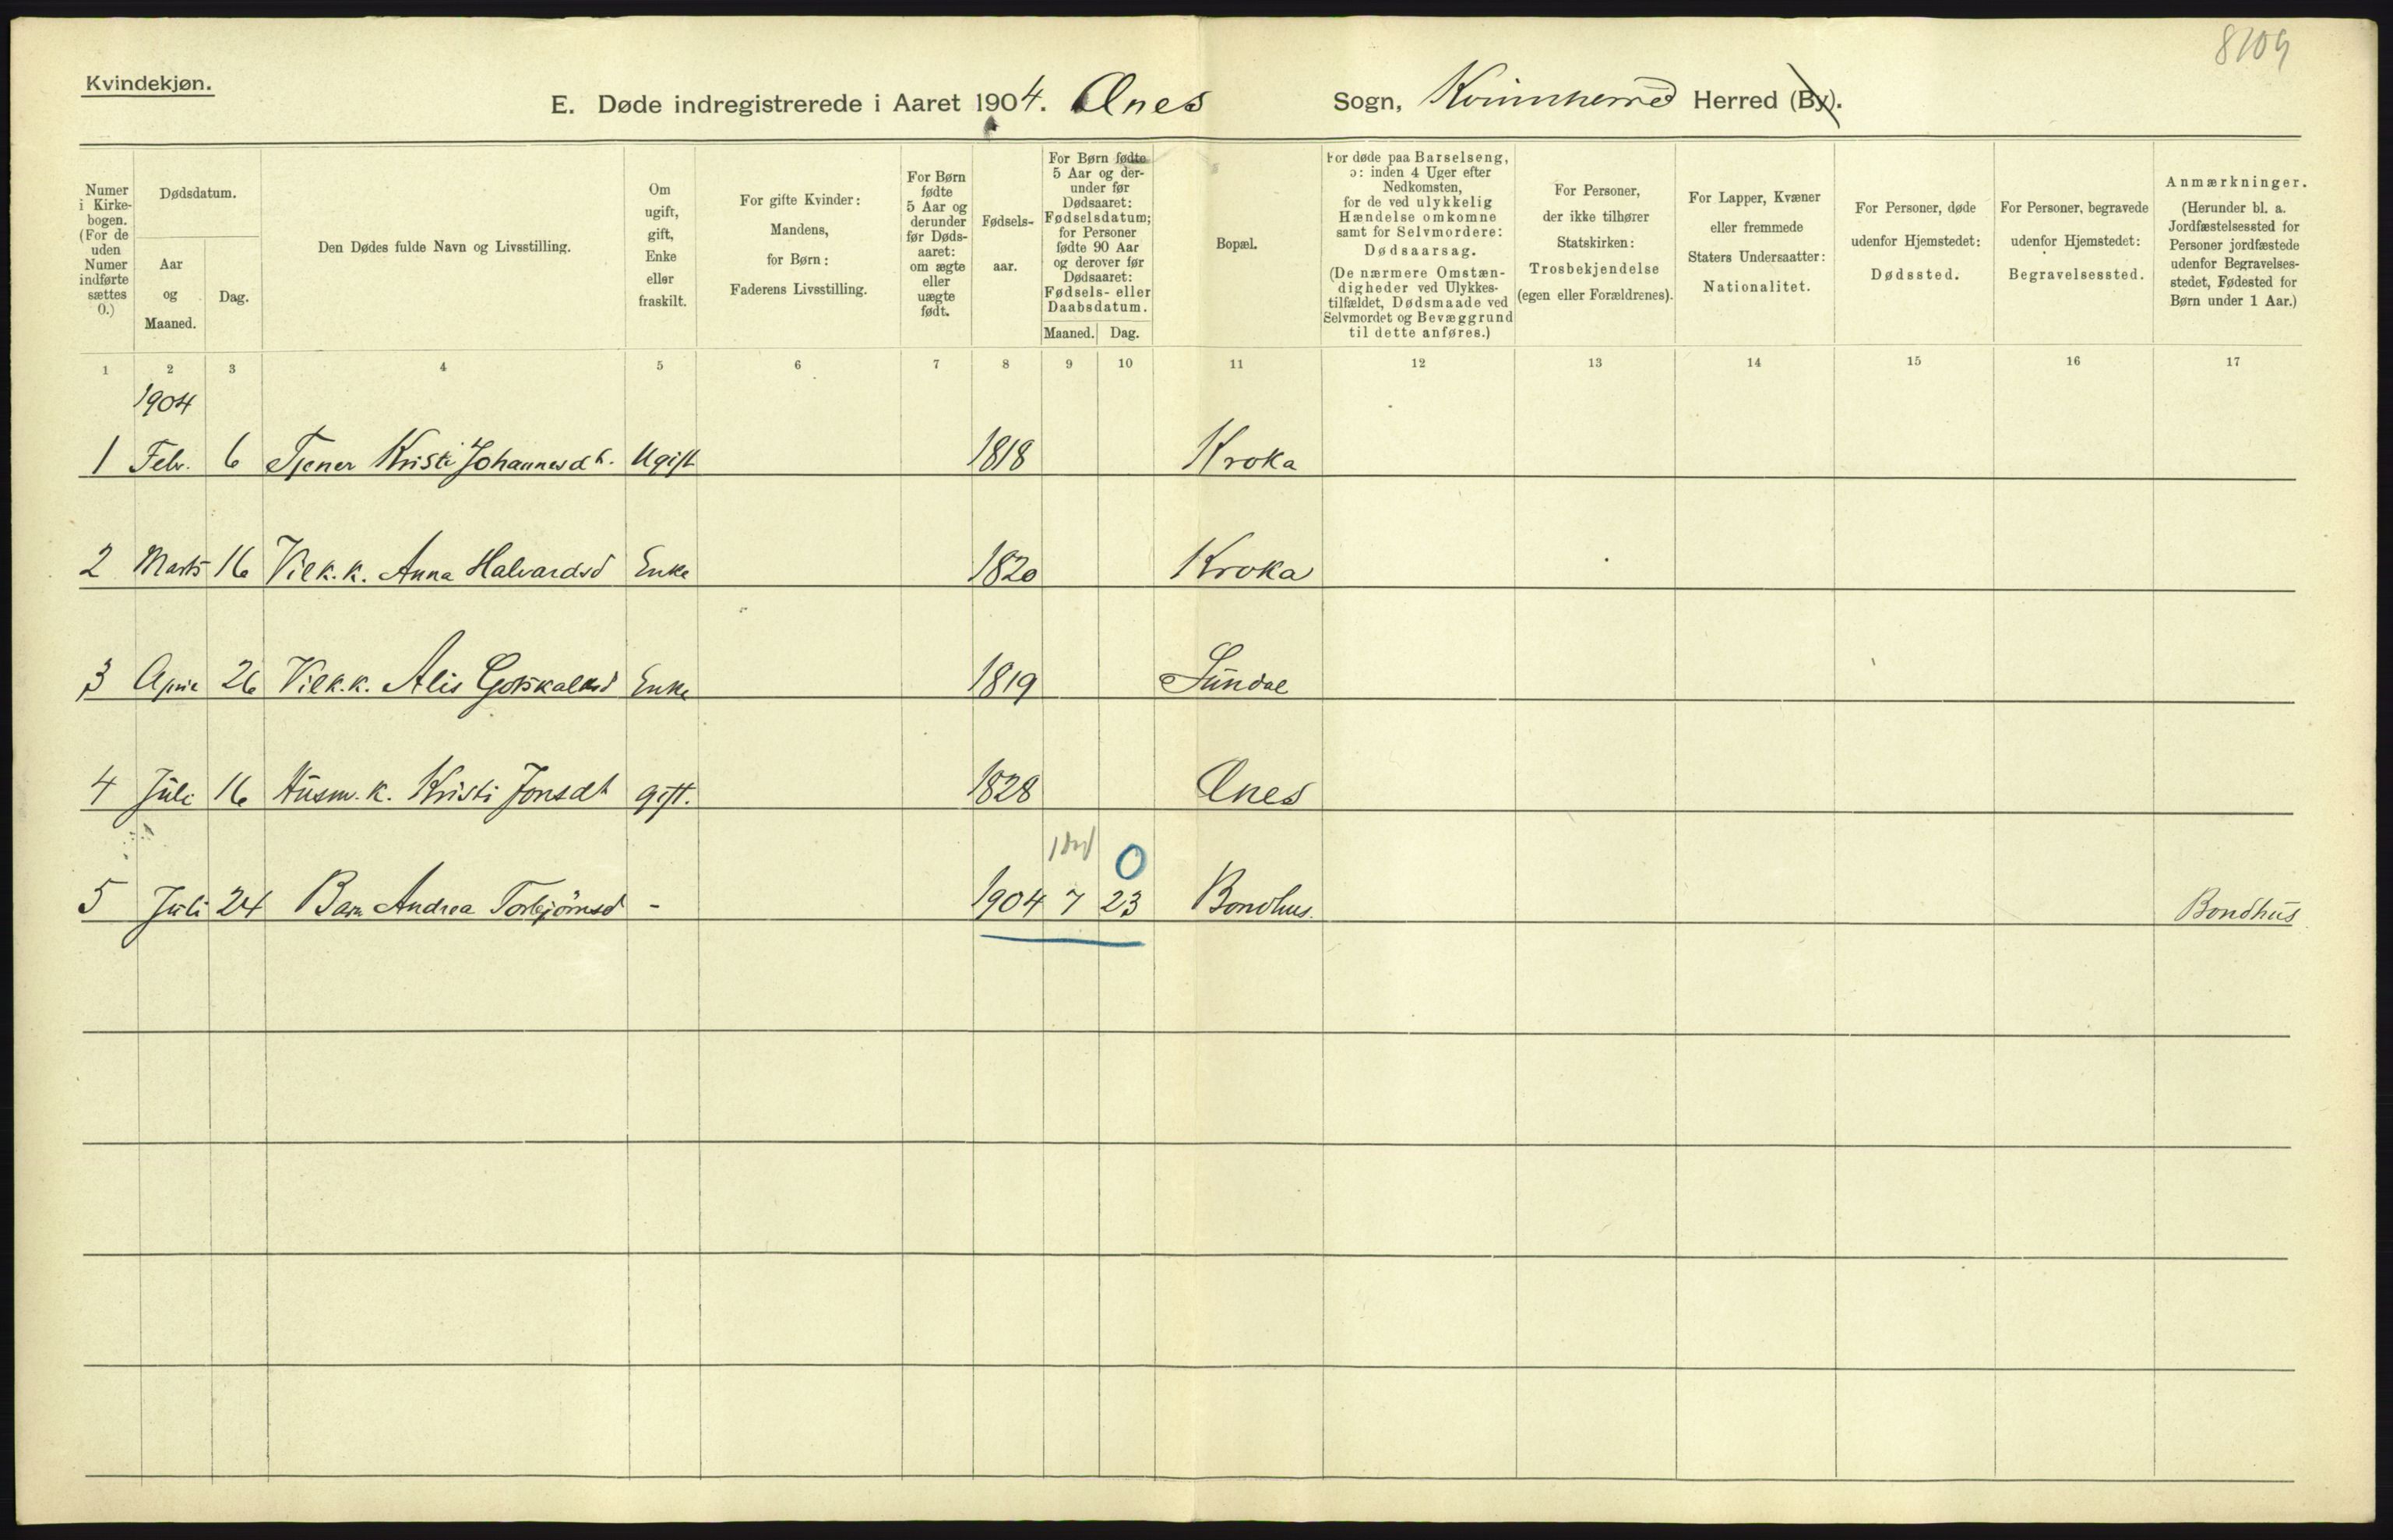 8109
Kvindekjøn.
E. Døde indregistrerede i Aaret 1904. Ænes Sogn, Kvinnherred Herred (By).
Numer i Kirke-bogen. (For de uden Numer indførte sættes 0.)
Dødsdatum.
Aar og Maaned.
Dag.
Den Dødes fulde Navn og Livsstilling.
Om ugift, gift, Enke eller fraskilt.
For gifte Kvinder: Mandens, for Børn: Faderens Livsstilling.
For Børn fødte 5 Aar og derunder før Døds-aaret: om ægte eller uægte født.
Fødsels-aar.
For Børn fødte 5 Aar og der-under før Dødsaaret: Fødselsdatum; for Personer fødte 90 Aar og derover før Dødsaaret: Fødsels- eller Daabsdatum.
Maaned. Dag.
Bopæl.
For døde paa Barselseng, ɔ: inden 4 Uger efter Nedkomsten, for de ved ulykkelig Hændelse omkomne samt for Selvmordere: Dødsaarsag. (De nærmere Omstæn-digheder ved Ulykkes-tilfældet, Dødsmaade ved Selvmordet og Bevæggrund til dette anføres.)
For Personer, der ikke tilhører Statskirken: Trosbekjendelse (egen eller Forældrenes).
For Lapper, Kvæner eller fremmede Staters Undersaatter: Nationalitet.
For Personer, døde udenfor Hjemstedet: Dødssted.
For Personer, begravede udenfor Hjemstedet: Begravelsessted.
Anmærkninger. (Herunder bl. a. Jordfæstelsessted for Personer jordfæstede udenfor Begravelses-stedet, Fødested for Børn under 1 Aar.)
1 2 3 4 5 6 7 8 9 10 11 12 13 14 15 16 17
1904
1 Febr. 6 Tjener Kristi Johannesdt. Ugift 1818 Kroka
2 Marts 16 Vilk.k. Anna Halvardsd Enke 1820 Kroka
3 April 26 Vilk.k. Alis Gotskalksd Enke 1819 Sundal
4 Juli 16 Husm.k. Kristi Jonsdt gift. 1828 Ænes
0
5 Juli 24 Barn Andrea Torbjörnsd - 1904 7 23 Bondhus. Bondhus